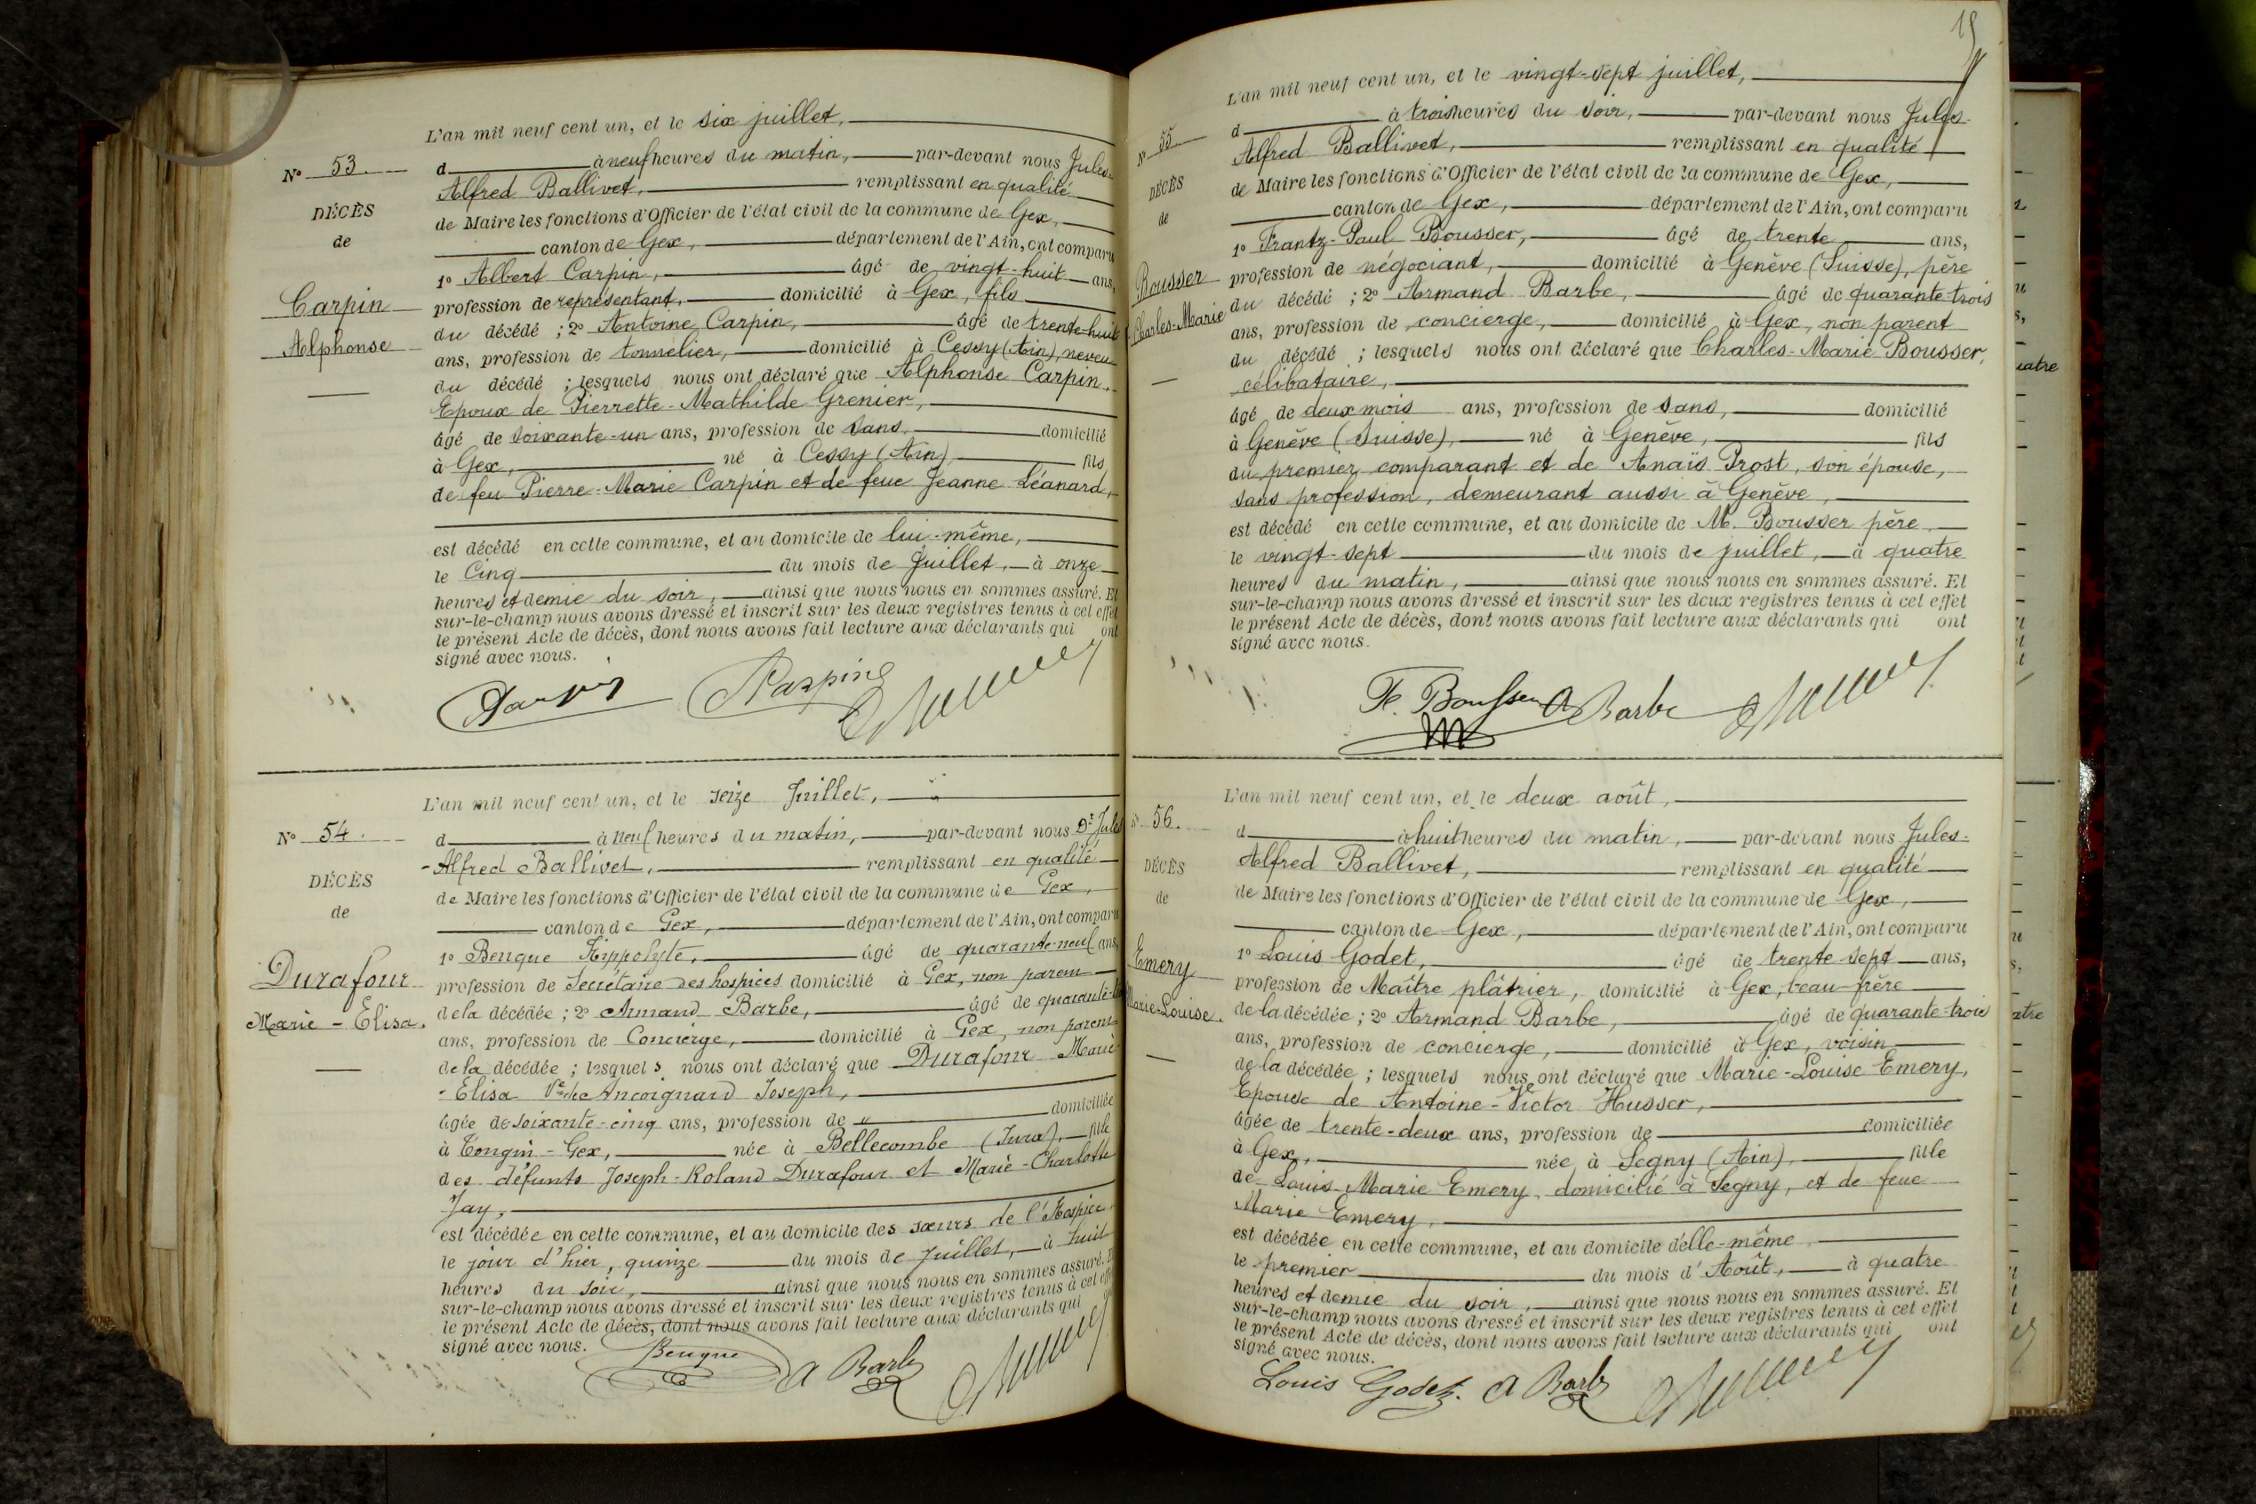 L'an mil neuf cent un, et le six juillet,
N° 53.
d à neuf heures du matin, par-devant nous Jules-
Alfred Ballivet, remplissant en qualité
DÉCÈS
de Maire les fonctions d'Officier de l'état civil de la commune de Gex,
de
canton de Gex, département de l'Ain, ont comparu
1° Albert Carpin, âgé de vingt-huit ans,
Carpin
profession de représentant, domicilié à Gex, fils
du décédé ; 2° Antoine Carpin, âgé de trente-huit
Alphonse
ans, profession de tonnelier, domicilié à Cessy (Ain), neveu
du décédé ; lesquels nous ont déclaré que Alphonse Carpin.
Epoux de Pierrette-Mathilde Grenier,
âgé de soixante-un ans, profession de sans, domicilié
à Gex, né à Cessy (Ain) fils
de feu Pierre-Marie Carpin et de feue Jeanne Léanard,
est décédé en cette commune, et au domicile de lui-même,
le Cinq du mois de Juillet, à onze
heures et demie du soir, ainsi que nous nous en sommes assuré. Et
sur-le-champ nous avons dressé et inscrit sur les deux registres tenus à cet effet
le présent Acte de décès, dont nous avons fait lecture aux déclarants qui ont
signé avec nous.
L'an mil neuf cent un, et le seize Juillet,
N° 54.
d à neuf heures du matin, par-devant nous Dr Jules
-Alfred Ballivet, remplissant en qualité
DÉCÈS
de Maire les fonctions d'Officier de l'état civil de la commune de Gex,
de
canton de Gex, département de l'Ain, ont comparu
1° Benque Hippolyte, âgé de quarante-neuf ans,
Durafour
profession de Secrétaire des hospices domicilié à Gex, non parent
Marie-Elisa.
de la décédée ; 2° Armand Barbe, âgé de quarante-
ans, profession de Concierge, domicilié à Gex, non parent
de la décédée ; lesquels nous ont déclaré que Durafour Marie
-Elisa Ve de Ancoignard Joseph,
âgée de soixante-cinq ans, profession de " domiciliée
à Tongin-Gex, née à Bellecombe (Jura), fille
des défunts Joseph-Roland Durafour et Marie-Charlotte
Jay,
est décédée en cette commune, et au domicile des sœurs de l'Hospice,
le jour d'hier, quinze du mois de Juillet, à huit
heures du soir, ainsi que nous nous en sommes assuré. Et
sur-le-champ nous avons dressé et inscrit sur les deux registres tenus à cet effet
le présent Acte de décès, dont nous avons fait lecture aux déclarants qui
signé avec nous.
Benque A Barbe
15
L'an mil neuf cent un, et le vingt-sept juillet,
N° 55
d à trois heures du soir, par-devant nous Jules-
Alfred Ballivet, remplissant en qualité
DÉCÈS
de Maire les fonctions d'Officier de l'état civil de la commune de Gex,
de
canton de Gex, département de l'Ain, ont comparu
1° Frantz-Paul Bousser, âgé de trente ans,
Bousser
profession de négociant, domicilié à Genève (Suisse), père
Charles-Marie
du décédé ; 2° Armand Barbe, âgé de quarante-trois
ans, profession de concierge, domicilié à Gex, non parent
du décédé ; lesquels nous ont déclaré que Charles-Marie Bousser,
célibataire,
âgé de deux mois ans, profession de sans, domicilié
à Genève (Suisse), né à Genève, fils
du premier comparant et de Anaïs Prost, son épouse,
sans profession, demeurant aussi à Genève,
est décédé en cette commune, et au domicile de M. Bousser père
le vingt-sept du mois de juillet, à quatre
heures du matin, ainsi que nous nous en sommes assuré. Et
sur-le-champ nous avons dressé et inscrit sur les deux registres tenus à cet effet
le présent Acte de décès, dont nous avons fait lecture aux déclarants qui ont
signé avec nous.
A Barbe
L'an mil neuf cent un, et le deux août,
N° 56.
d à huit heures du matin, par-devant nous Jules-
Alfred Ballivet, remplissant en qualité
DÉCÈS
de Maire les fonctions d'Officier de l'état civil de la commune de Gex,
de
canton de Gex, département de l'Ain, ont comparu
1° Louis Godet, âgé de trente sept ans,
Emery
profession de Maître plâtrier, domicilié à Gex, beau-frère
Marie-Louise.
de la décédée ; 2° Armand Barbe, âgé de quarante-trois
ans, profession de concierge, domicilié à Gex, voisin
de la décédée ; lesquels nous ont déclaré que Marie-Louise Emery,
Epouse de Antoine-Victor Husser,
âgée de trente-deux ans, profession de domiciliée
à Gex, née à Segny (Ain) fille
de Louis-Marie Emery, domicilié à Segny, et de feue
Marie Emery,
est décédée en cette commune, et au domicile d'elle-même
le premier du mois d'Août, à quatre
heures et demie du soir, ainsi que nous nous en sommes assuré. Et
sur-le-champ nous avons dressé et inscrit sur les deux registres tenus à cet effet
le présent Acte de décès, dont nous avons fait lecture aux déclarants qui ont
signé avec nous.
Louis Godet. A Barbe